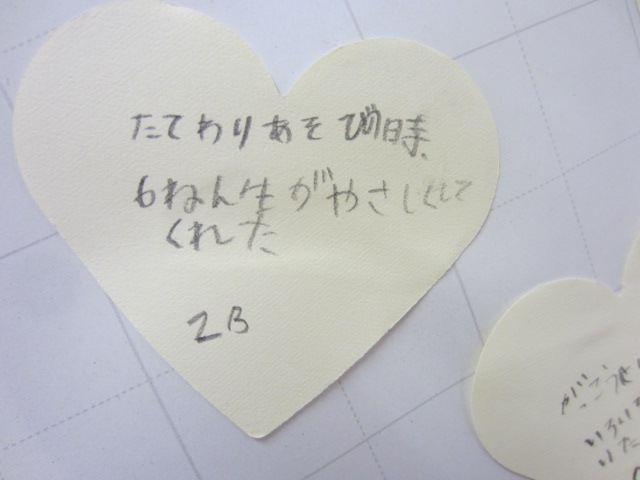 たてわりあそびの時、
6ねん生がやさしくして
くれた
2B
いろいろ